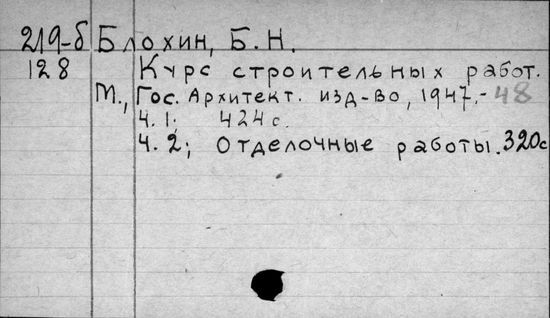 219-б Блохин, Б.Н.
128 Курс строительных работ.
М., Гос. Архитект. изд-во, 1947.-48
ч. 1; 424 с.
ч. 2; Отделочные работы. 320с